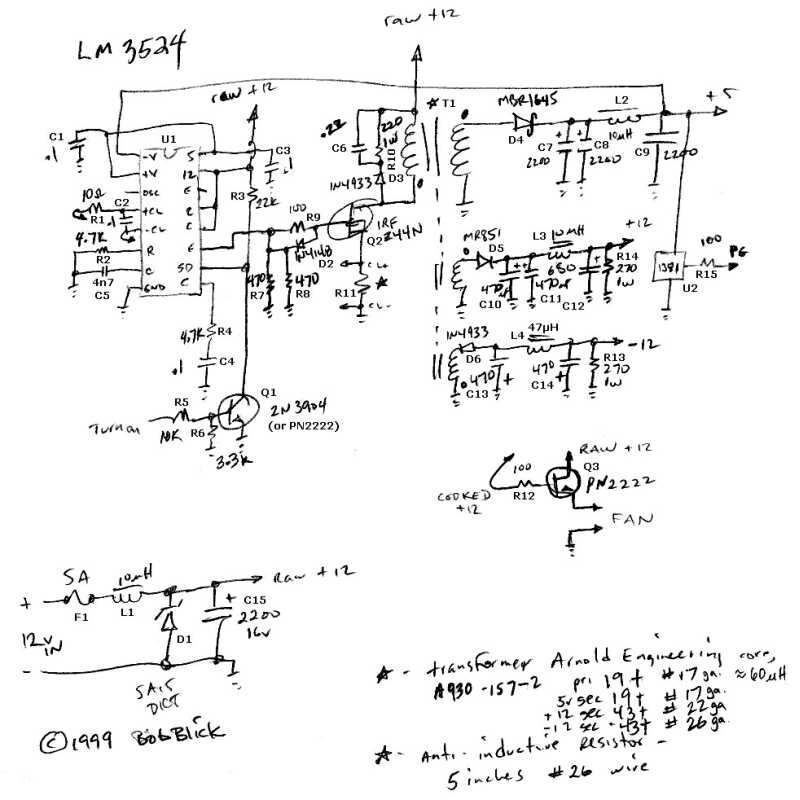 LM 3524
raw +12
raw +12
C1
.1
U1
-V
+V
OSC
+CL
-CL
R
C
GND
5
12
E
C
C
E
SD
C
C3
.1
10Ω
R1
C2
.1
4.7K
R2
4n7
C5
R3
22K
.22
C6
220
1W
R10
1N4933
D3
100
R9
1N4148
D2
470
R7
470
R8
IRF
Z44N
Q2
CL+
R11
CL-
T1
MBR1645
D4
C7
2200
C8
2200
L2
10µH
C9
2200
+5
MR851
D5
L3
10µH
+12
470
C10
470µF
C11
680
C12
R14
270
1W
1381
U2
100
R15
PG
1N4933
D6
L4
47µH
-12
470
C13
470
C14
R13
270
1W
4.7K
R4
.1
C4
Turnon
R5
10K
R6
3.3K
Q1
2N3904
(or PN2222)
RAW +12
Q3
PN2222
100
R12
COOKED
+12
FAN
5A
F1
10µH
L1
Raw +12
+
12v
IN
-
D1
+ C15
2200
16v
SA15
DICT
©1999 Bob Blick
☆ - transformer Arnold Engineering core,
A930-157-2
pri 19t #17ga. ≈60µH
5v sec 19t #17ga.
+12 sec 43t #22ga
-12 sec 43t #26ga.
☆ - Anti-inductive Resistor -
5 inches #26 wire